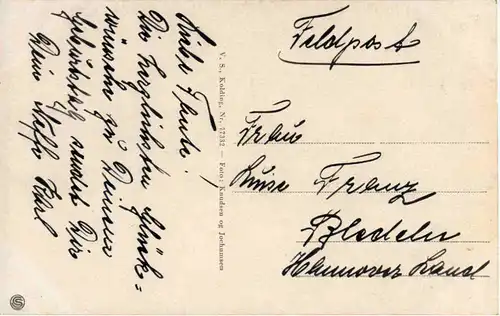 Liebe Tante!
Die herzlichsten Glück-
wünsche zu Deinem
Geburtstag sendet Dir
Dein Neffe Karl
V. S., Kolding, Nr. 27332 — Foto: Knudsen og Jochumsen
Feldpost
Frau
Luise Franz
Bledeln
Hannover Land